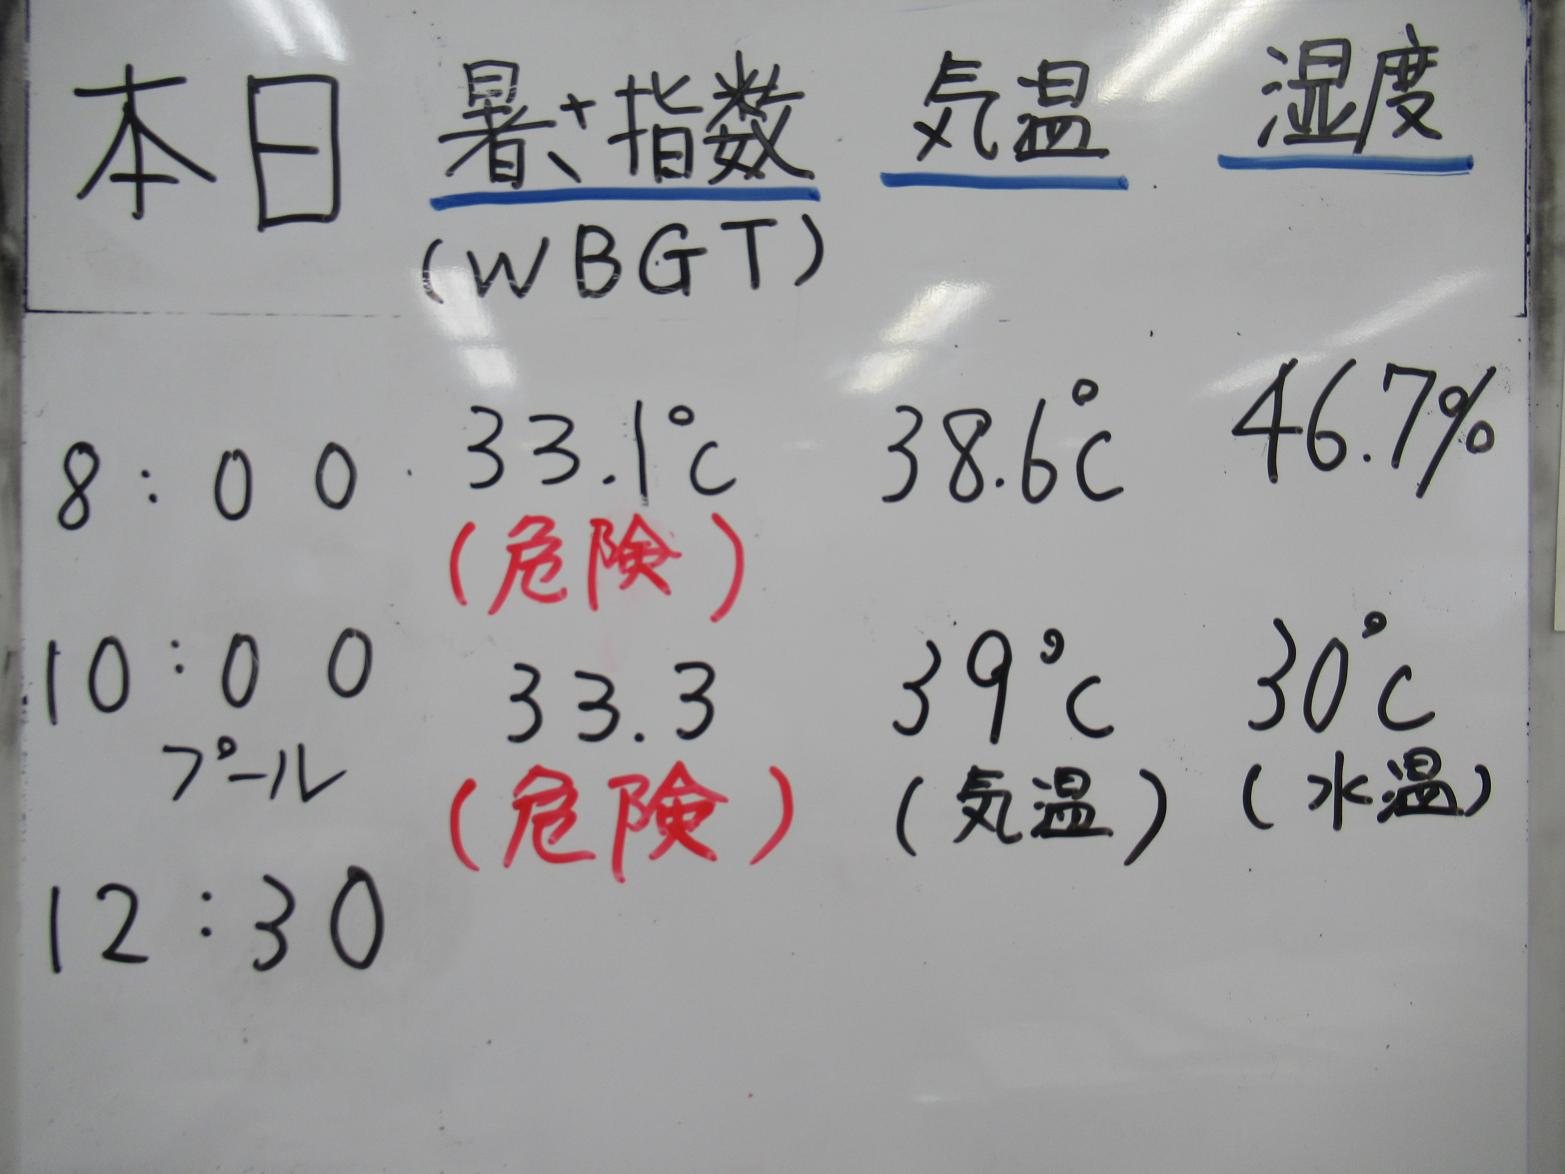 本日 暑さ指数 気温 湿度
(WBGT)
8:00 33.1℃ 38.6℃ 46.7%
(危険)
10:00 33.3 39℃ 30℃
プール (危険) (気温) (水温)
12:30